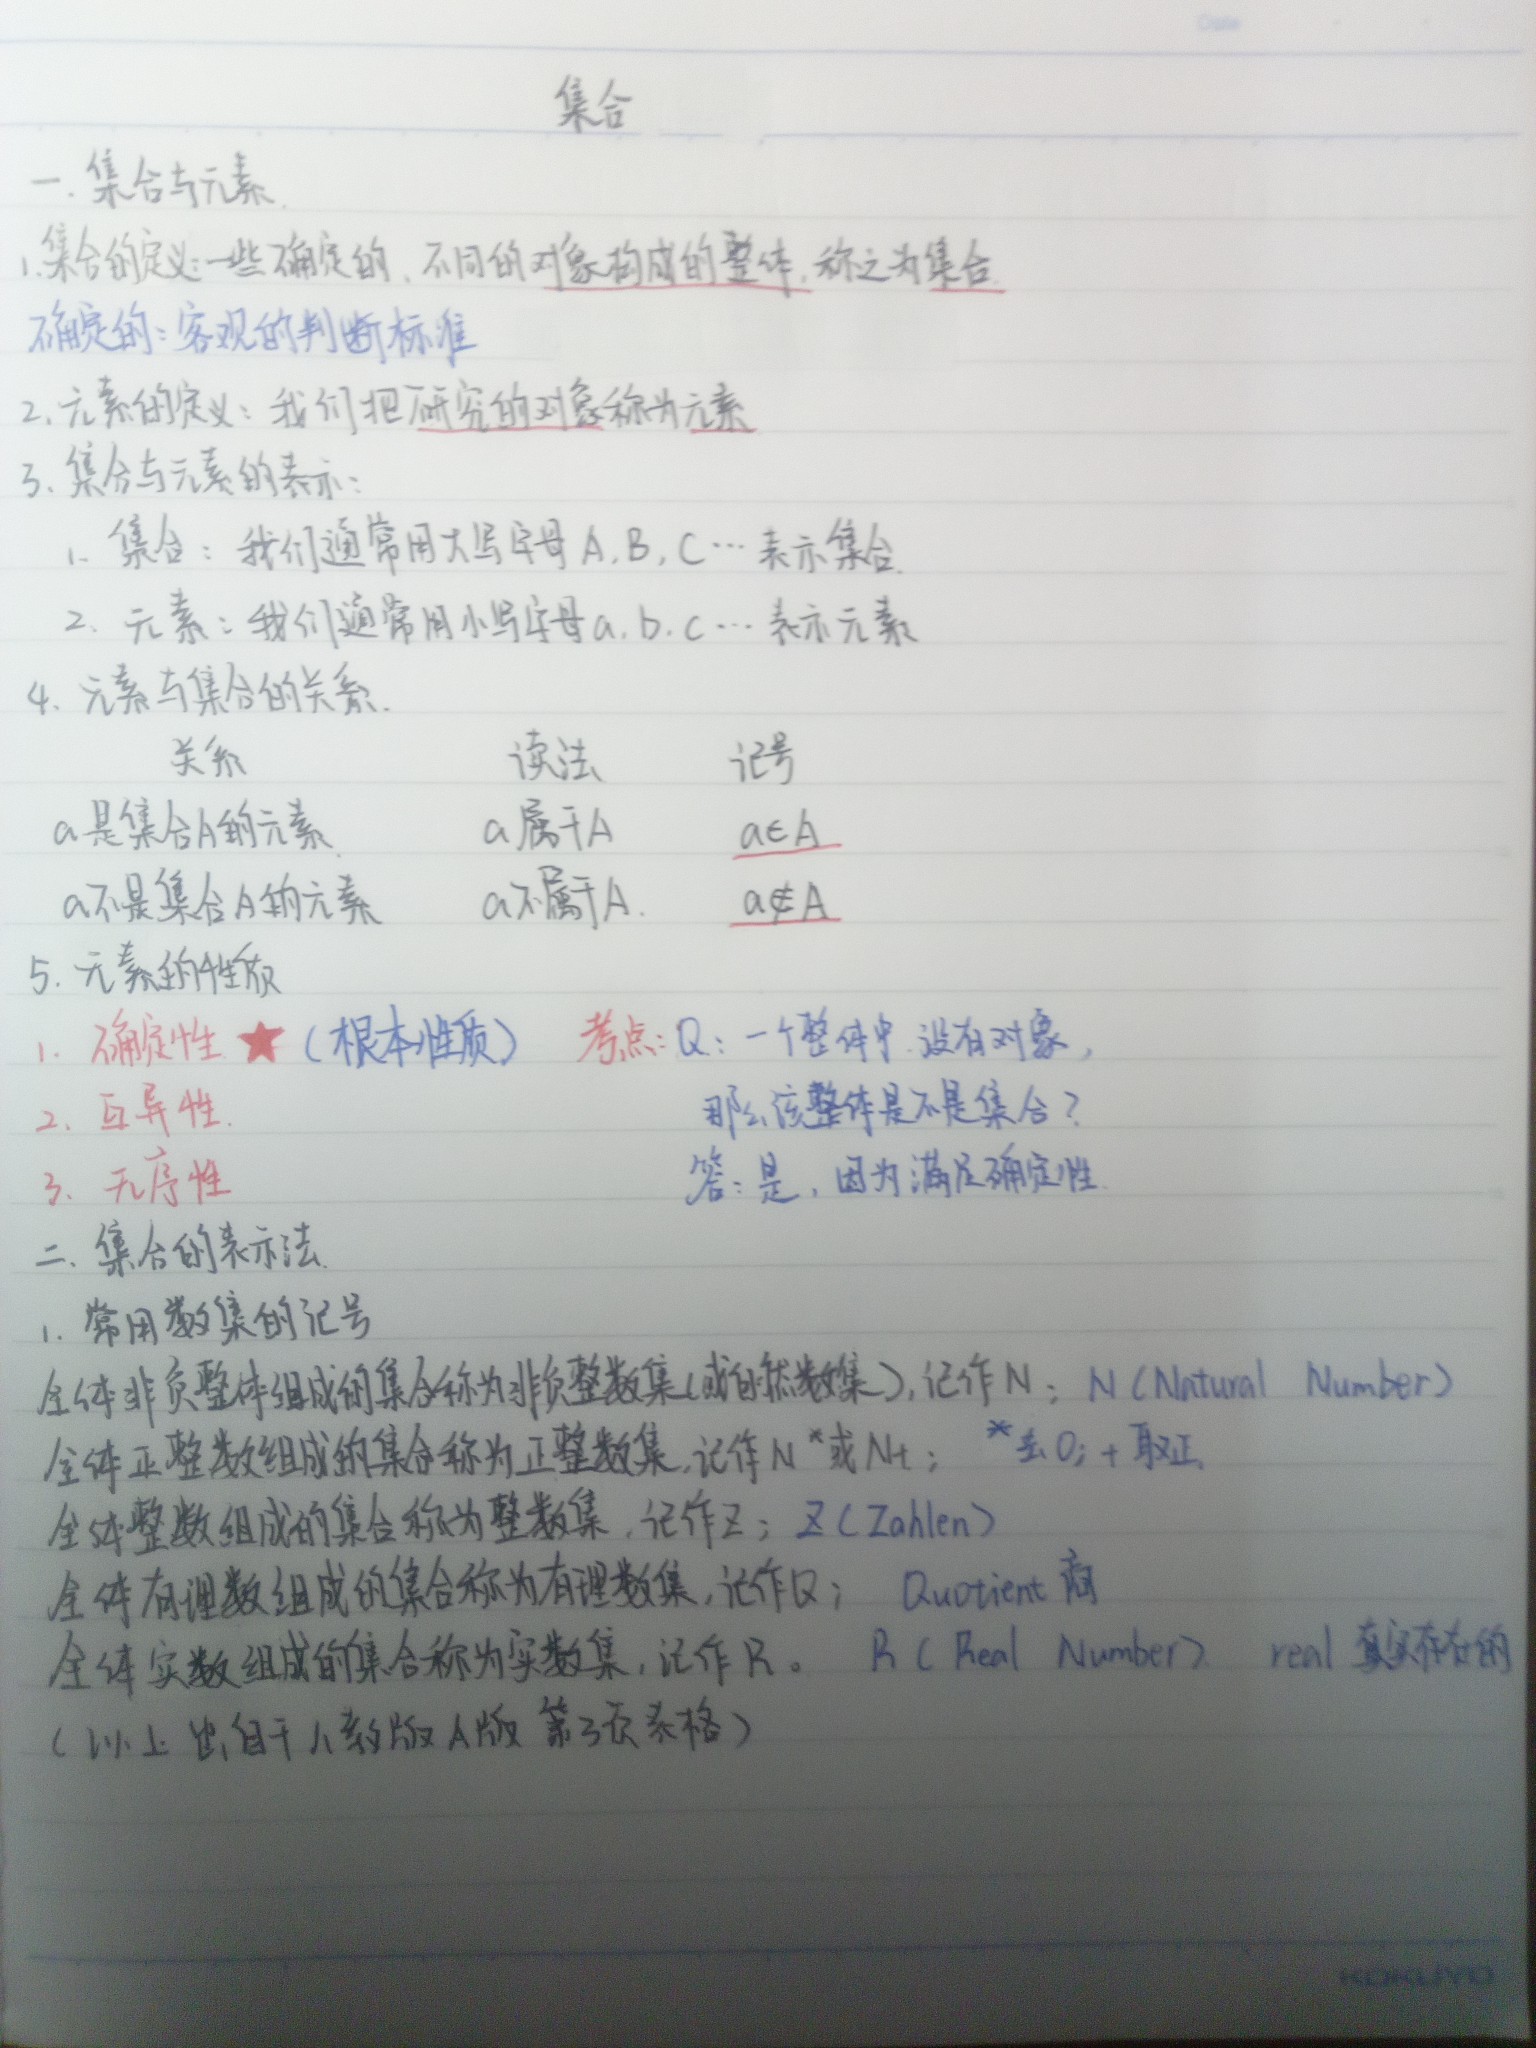 Date
集合
一. 集合与元素.
1. 集合的定义:一些确定的、不同的对象构成的整体,称之为集合.
确定的:客观的判断标准
2. 元素的定义:我们把研究的对象称为元素
3. 集合与元素的表示:
1. 集合:我们通常用大写字母A,B,C…表示集合.
2. 元素:我们通常用小写字母a.b.c…表示元素
4. 元素与集合的关系.
关系 读法 记号
a是集合A的元素. a属于A a∈A
a不是集合A的元素 a不属于A. a∉A
5. 元素的性质
1. 确定性 ★ (根本性质) 考点: Q: 一个整体中没有对象,
2. 互异性. 那么该整体是不是集合?
3. 无序性 答:是,因为满足确定性.
二. 集合的表示法.
1. 常用数集的记号
全体非负整体组成的集合称为非负整数集(或自然数集),记作N; N(Natural Number)
全体正整数组成的集合称为正整数集,记作N*或N+; *去0;+取正
全体整数组成的集合称为整数集,记作Z; Z(Zahlen)
全体有理数组成的集合称为有理数集,记作Q; Quotient 商
全体实数组成的集合称为实数集,记作R。 R(Real Number) real 真实存在的
(以上出自于人教版A版 第3页表格)
KOKUYO